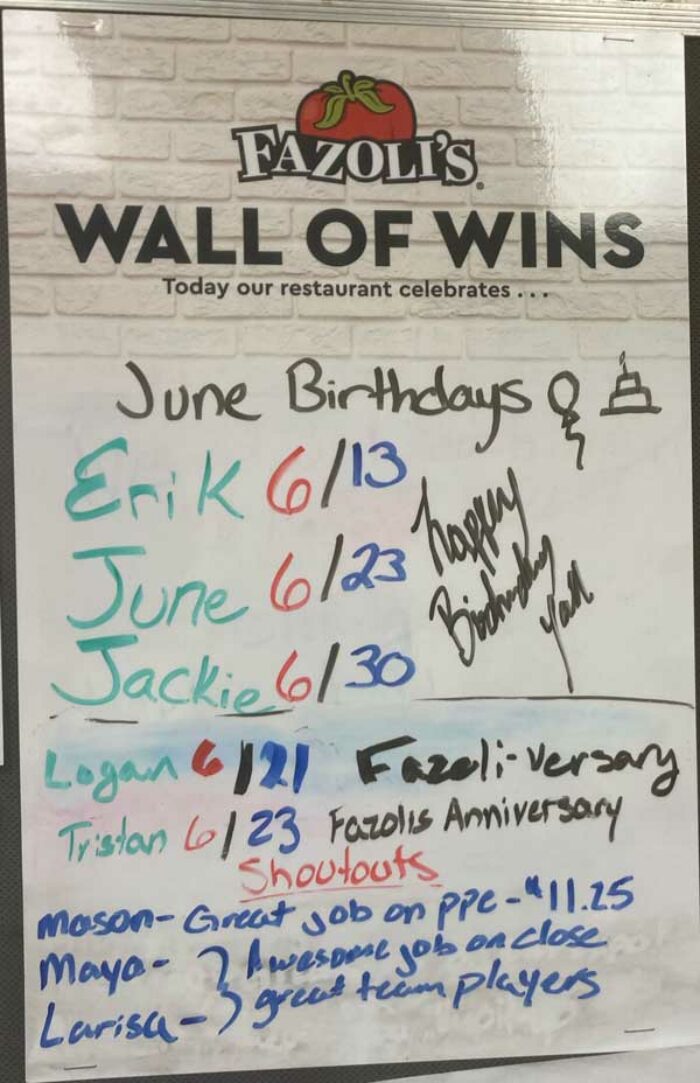 FAZOLI'S
WALL OF WINS
Today our restaurant celebrates ...
June Birthdays
Erik 6/13
June 6/23
Jackie 6/30
Happy
Birthday
Y'all
Logan 6/21 Fazoli-versary
Tristan 6/23 Fazolis Anniversary
Shoutouts
Mason- Great job on ppc - $11.25
Maya- } Awesome job on close
Larisa- } great team players